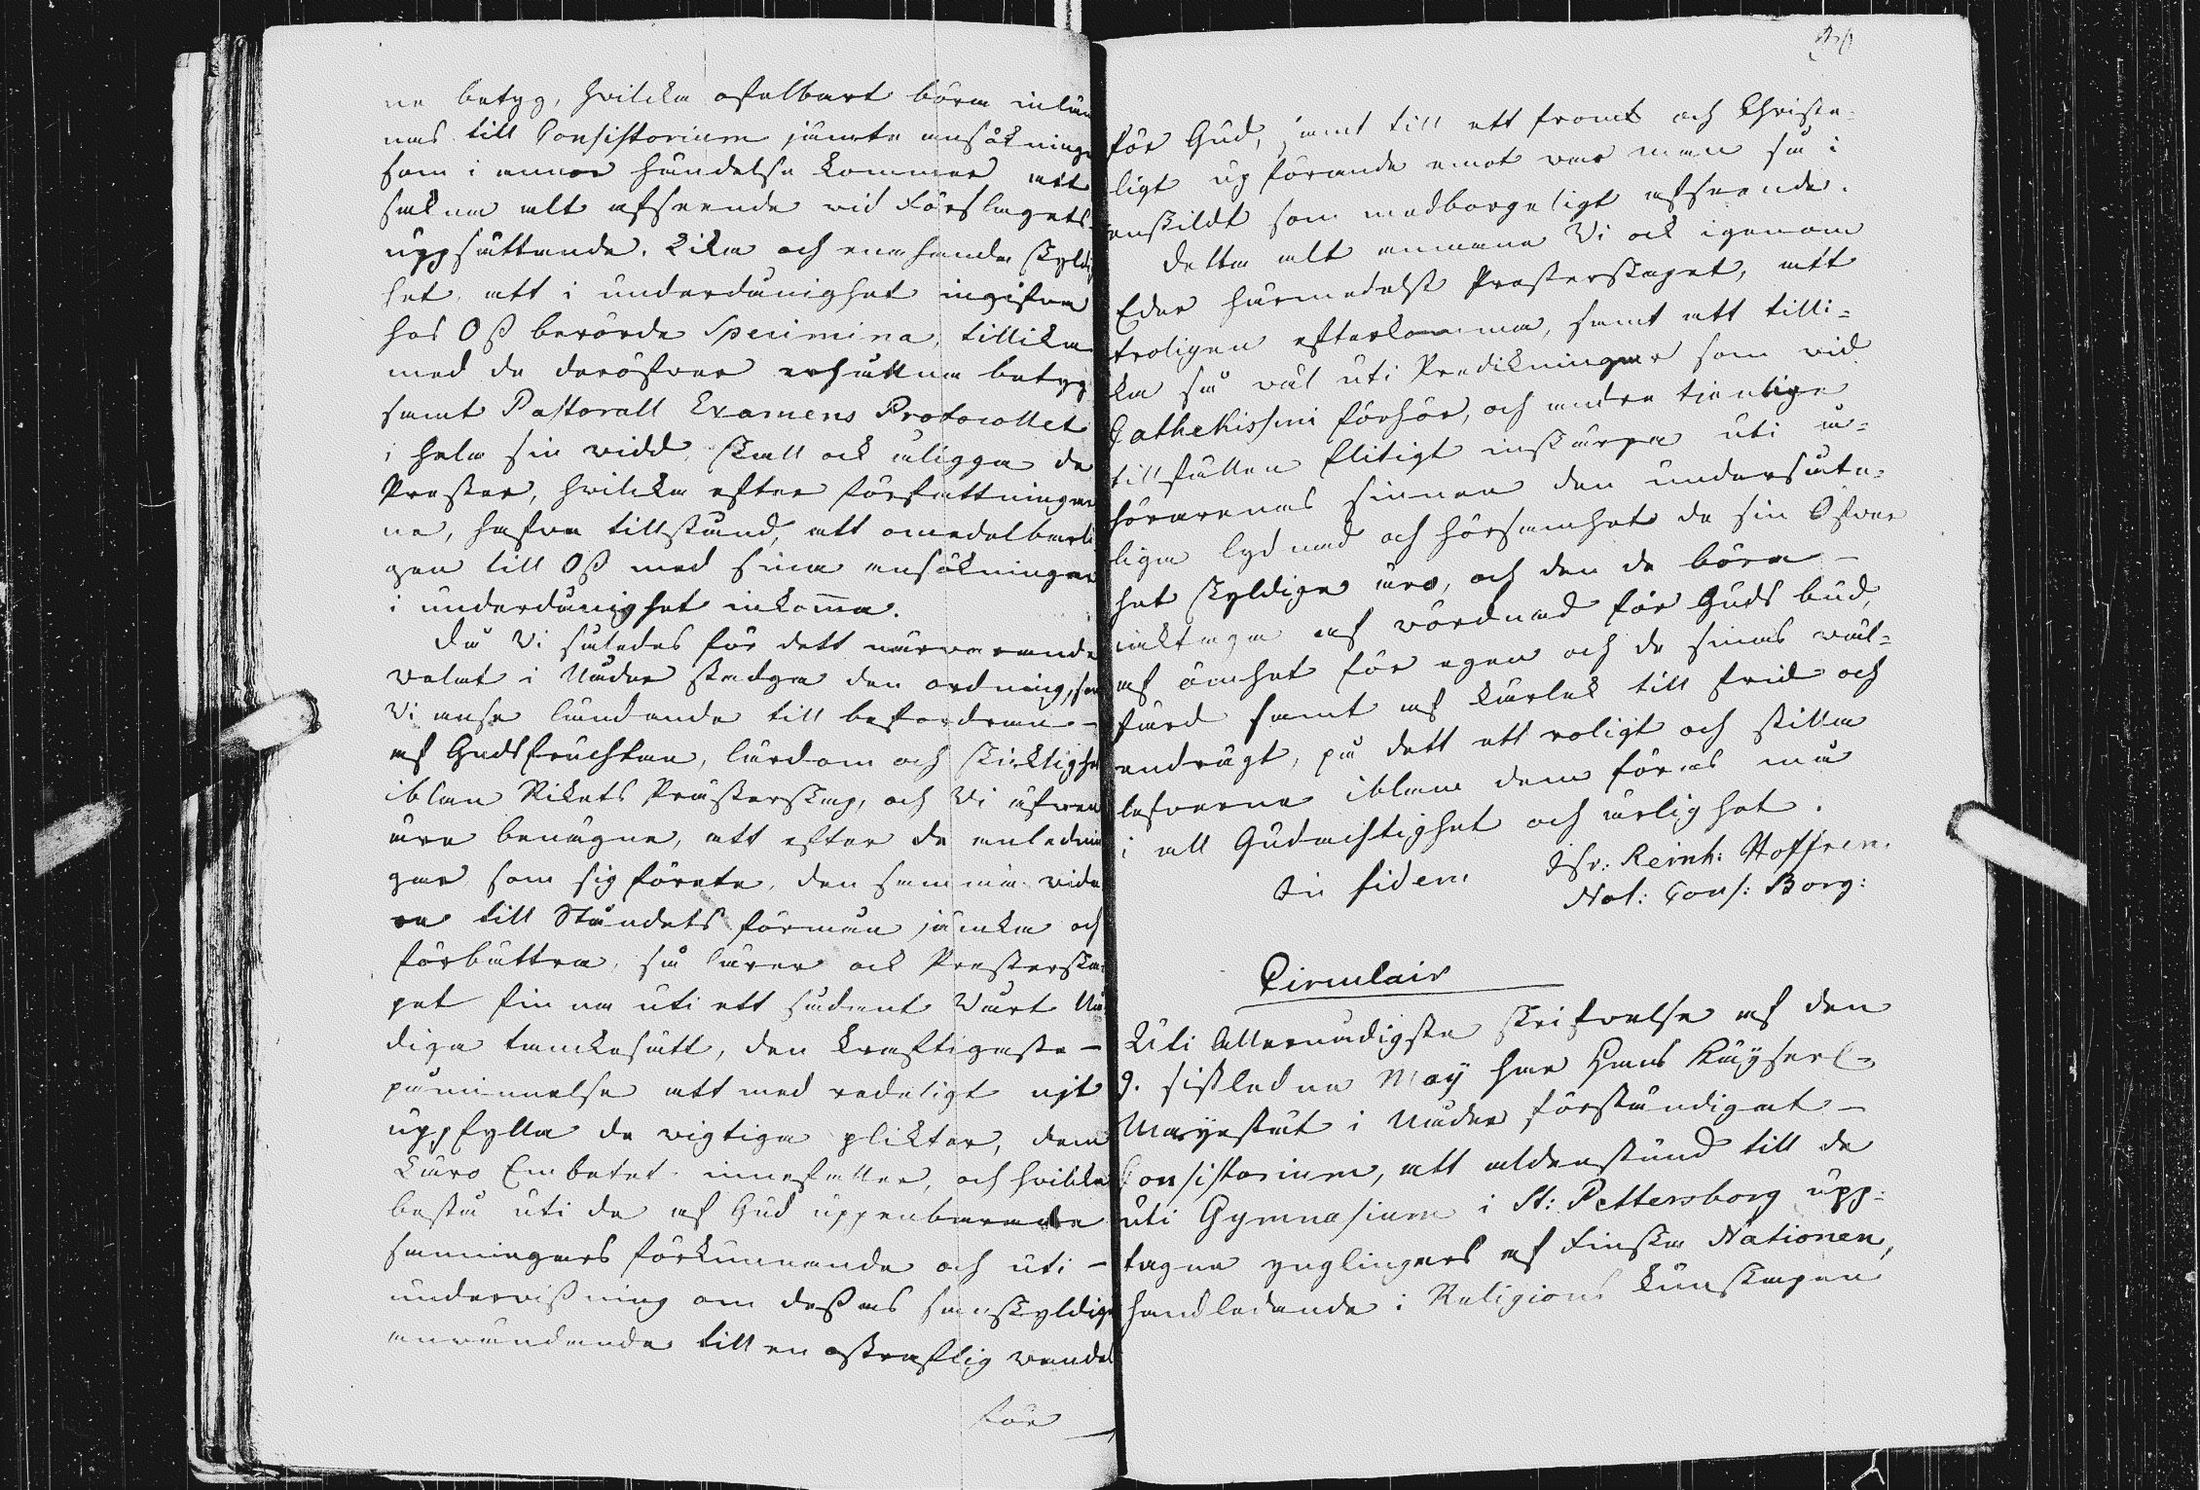 ne betyg, hvilcka ofelbart böra inläm
nas till Consistorium jämte ansökninge
som i annor händelse kommer att
sakna alt afseende vid Förslagets
uppsättande. Lika och enahanda skyldig
het, att i underdånighet ingifva
hos Oß berörde Specimina, tillika
med de deröfver erhållna betyg
samt Pastorall Examens Protocollet
i hela sin vidd, skall ock åligga de
Prester, hvilcka efter författningar
ne, hafva tillstånd, att omedelbarli
gen till Oß med sina ansökningar
i underdånighet inkomma.
Då Vi således för dett närvarande
velat i Nåder stadga den ordning, som
Vi anse ländande till befordran
af Gudsfruchtan, lärdom och skicklighet
iblan Rikets Prästerskap, och Vi äfven
äre benägne, att efter de anlednin
gar som sig förete, den samma vida
re till Ståndets förmån jämka och
förbättra, så lärer ock Presterska
pet finna uti ett sådant Vårt Nå
diga tanckesätt, den kraftigaste
påminnelse att med redeligt nit
uppfylla de vigtiga plikter, dem
Läro Embetet innefattar, och hvilka
bestå uti de af Gud uppenbarade
sanningars förkunnande och uti
undervißning om deßas sanskyldiga
användande till en ostraflig vandel
för
för Gud, samt till ett fromt och Christe-
ligt upförande emot var man så i
enskildt som medborgeligt afseende.
Detta alt anmane Vi ock igenom
Eder härmedelst Presterskapet, att
troligen efterkomma, samt att tilli-
ka så väl uti Predikningar som vid
Cathekismi förhör, och andra tjenliga
tillfällen flitigt inskärpa uti å-
hörarenas sinnen den undersåte-
liga lydnad och hörsamhet de sin Öfver
het skyldige äro, och den de böra
iakttaga af vördnad för Guds bud,
af ömhet för egen och de sinas väl-
färd samt af kärlek till frid och
endrägt, på dett ett roligt och stilla
lefverne iblan dem föras må
i all Gudachtighet och ärlighet.
In fidem Isr: Reinh: Hoffren.
Not: Cons: Borg:
Circulair
Uti Allernådigste skrifvelse af den
9. sistledne Maÿ har Hans Kaÿserl-
Mayestät i Nåder förständigat
Consistorium, att aldenstund till de
uti Gymnasium i St: Pettersborg upp-
tagne ynglingars af Finska Nationen,
handledande i Religions kunskapen